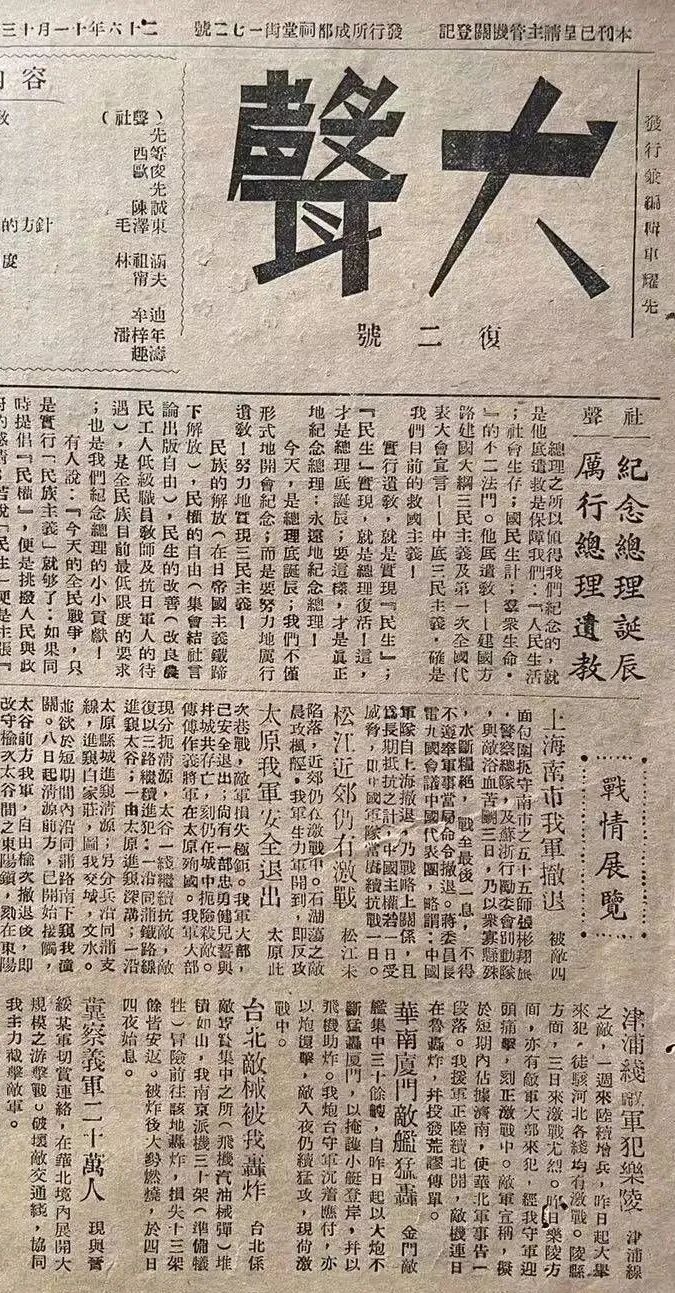 本刊已呈請主管機關登記
發行所成都祠堂街一七二號
二十六年十一月十三
發行兼編輯車耀先
大聲
復二號
內容
（聲社）
先
西等
歐俊
先
陳誠
毛澤東
的方針
林祖涵
甯夫
度
牟迪
潘梓年
趣濤
社聲
紀念總理誕辰
厲行總理遺教
總理之所以値得我們紀念的，就
是他底遺敎是保障我們：『人民生活
；社會生存；國民生計；羣衆生命。
』的不二法門。他底遺敎——建國方
路建國大綱三民主義及第一次全國代
表大會宣言——中底三民主義，確是
我們目前的救國主義！
實行遺敎，就是實現『民生』；
『民生』實現，就是總理復活！這，
才是總理底誕辰；要這樣，才是眞正
地紀念總理；永遠地紀念總理！
今天，是總理底誕辰；我們不僅
形式地開會紀念；而是要努力地厲行
遺敎！努力地實現三民主義！
民族的解放（在日帝國主義鐵蹄
下解放），民權的自由（集會結社言
論出版自由），民生的改善（改良農
民工人低級職員敎師及抗日軍人的待
遇），是全民族目前最低限度的要求
；也是我們紀念總理的小小貢獻！
有人說：『今天的全民戰爭，只
是實行「民族主義」就够了；如果同
時提倡「民權」，便是挑撥人民與政
戰情展覽
上海南市我軍撤退
被敵四
面包圍扼守南市之五十五師張彬翔旅
，警察總隊，及蘇浙行勵委會別動隊
，與敵浴血苦鬭三日，乃以衆寡懸殊
，水斷糧絕，戰至最後一息，不得
不遵奉軍事當局命令撤退。蔣委員長
電九國會議中國代表團，略謂：中國
軍隊自上海撤退，乃戰略上關係，且
爲長期抵抗之計，中國主權若一日受
威脅，即中國軍隊當賡續抗戰一日。
松江近郊仍有激戰
松江未
陷落，近郊仍在激戰中。石湖蕩之敵
晨攻楓涇。我軍生力軍開到，即反攻
太原我軍安全退出
太原此
次巷戰，敵軍損失極鉅。我軍大部，
已安全退出；尙有一部忠勇健兒誓與
井城共存亡，刻仍在城中扼險殺敵。
傳傅作義將軍在太原殉國。我軍大部
現分扼淸源，太谷一綫繼續抗敵，敵
復以三路繼續進犯：一沿同蒲鐵路線
進窺太谷；一由太原進窺深溝；一沿
太原縣城進窺淸源；另分兵沿同蒲支
線，進窺白家莊，圖我交城，文水。
並欲於短期間內沿同蒲路南下窺我潼
關。八日起淸源前方，已開始接觸，
太谷前方我軍，自由榆次撤退後，即
改守榆次太谷間之東陽鎭，刻在東陽
津浦綫敵軍犯樂陵
津浦線
之敵，一週來陸續增兵，昨日起大舉
來犯，徒駭河北各綫均有激戰。陵縣
方面，三日來激戰尤烈。昨日樂陵方
面，亦有敵軍大部來犯，經我守軍迎
頭痛擊，刻正激戰中。敵軍宣稱，擬
於短期內佔據濟南，使華北軍事吿一
段落。我援軍正陸續北開，敵機連日
在魯轟炸，幷投發荒謬傳單。
華南廈門敵艦猛轟
金門敵
艦集中三十餘艘，自昨日起以大炮不
斷猛轟廈門，以掩護小艇登岸，幷以
飛機助炸。我炮台守軍沉着應付，亦
以炮還擊，敵入夜仍續猛攻，現尙激
戰中。
台北敵械被我轟炸
台北係
敵軍實集中之所（飛機汽油械彈）堆
積如山，我南京派機三十架（準備犧
牲）冒險前往該地轟炸，損失十三架
餘皆安返。被炸後大勢燃燒，於四日
四夜始息。
冀察義軍二十萬人
現與晉
綏某軍切實連絡，在華北境內展開大
規模之游擊戰。破壞敵交通綫，協同
我主力截擊敵軍。